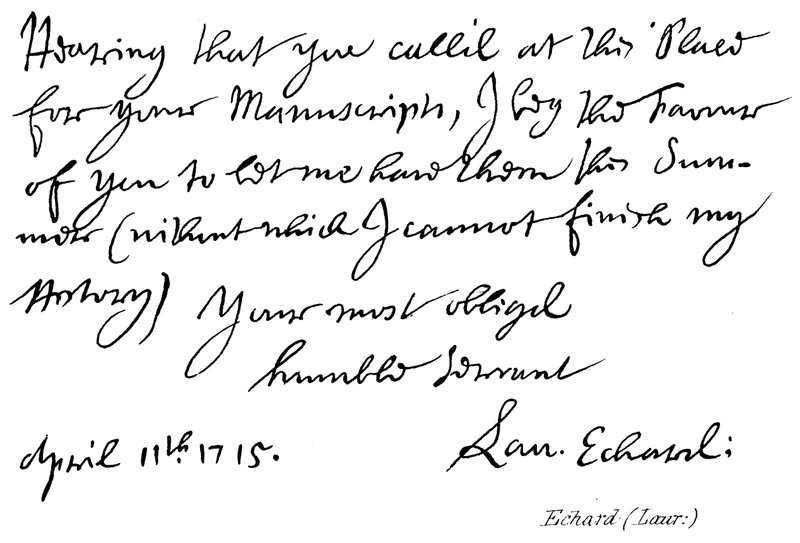 Hearing that you call'd at this Place
for your Manuscripts, I beg the Favour
of you to let me have them this Sum-
mer (without which I cannot finish my
History) Your most obliged
humble Servant
April 11th. 1715. Lau. Echard:
Echard (Laur:)